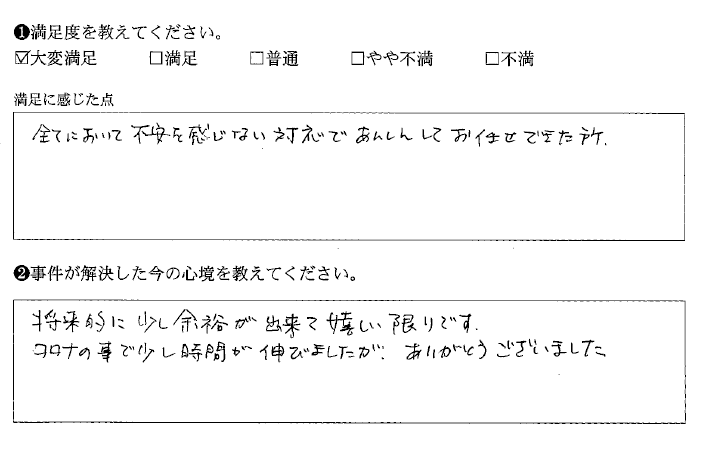 ❶満足度を教えてください。
☑大変満足 □満足 □普通 □やや不満 □不満
満足に感じた点
全てにおいて不安を感じない対応であんしんしてお任せできた所.
❷事件が解決した今の心境を教えてください。
将来的に少し余裕が出来て嬉しい限りです.
コロナの事で少し時間が伸びましたが、ありがとうございました